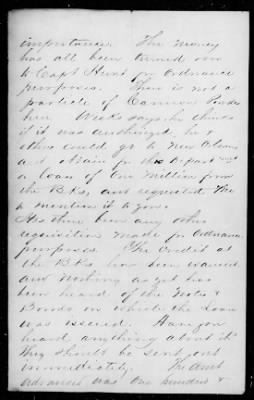 importance. The money
has all been turned over
to Capt Hunt for Ordnance
purposes. There is not a
particle of Cannon Powder
here. Weeks says he thinks
if it was authorized he &
others could go to New Orleans
and obtain for the Depart
a loan of One Million from
the Bks, and requested me
to mention it to you.
Has there been any other
requisition made for Ordnance
purposes. The credit at
the Bks, has been wanted
and nothing as yet has
been heard of the Notes &
Bonds on which the Loan
was issued. Have you
heard anything about it
They should be sent out
immediately. The amt
advanced was One hundred &